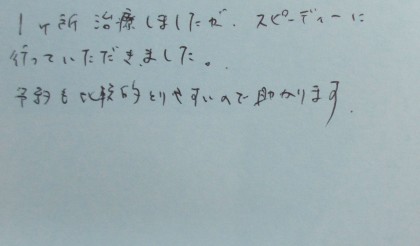 1ヶ所 治療しましたが、スピーディーに
行っていただきました。
予約も比較的とりやすいので助かります。